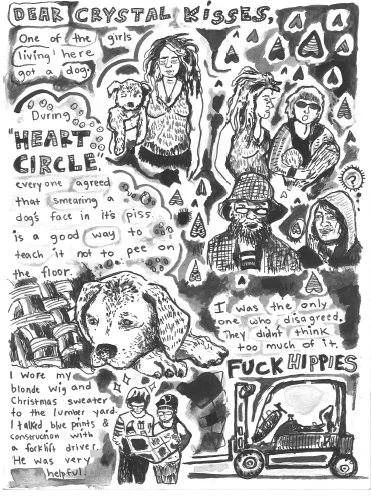 DEAR CRYSTAL KISSES,
One of the girls
living here
got a dog.
During
"HEART
CIRCLE,"
everyone agreed
that smearing a
dog's face in it's piss
is a good way to
teach it not to pee on
the floor.
I was the only
one who disagreed.
They didnt think
too much of it.
FUCK HIPPIES
I wore my
blonde wig and
Christmas sweater
to the lumber yard.
I talked blue prints &
construction with
a forklift driver.
He was very
helpful.
?